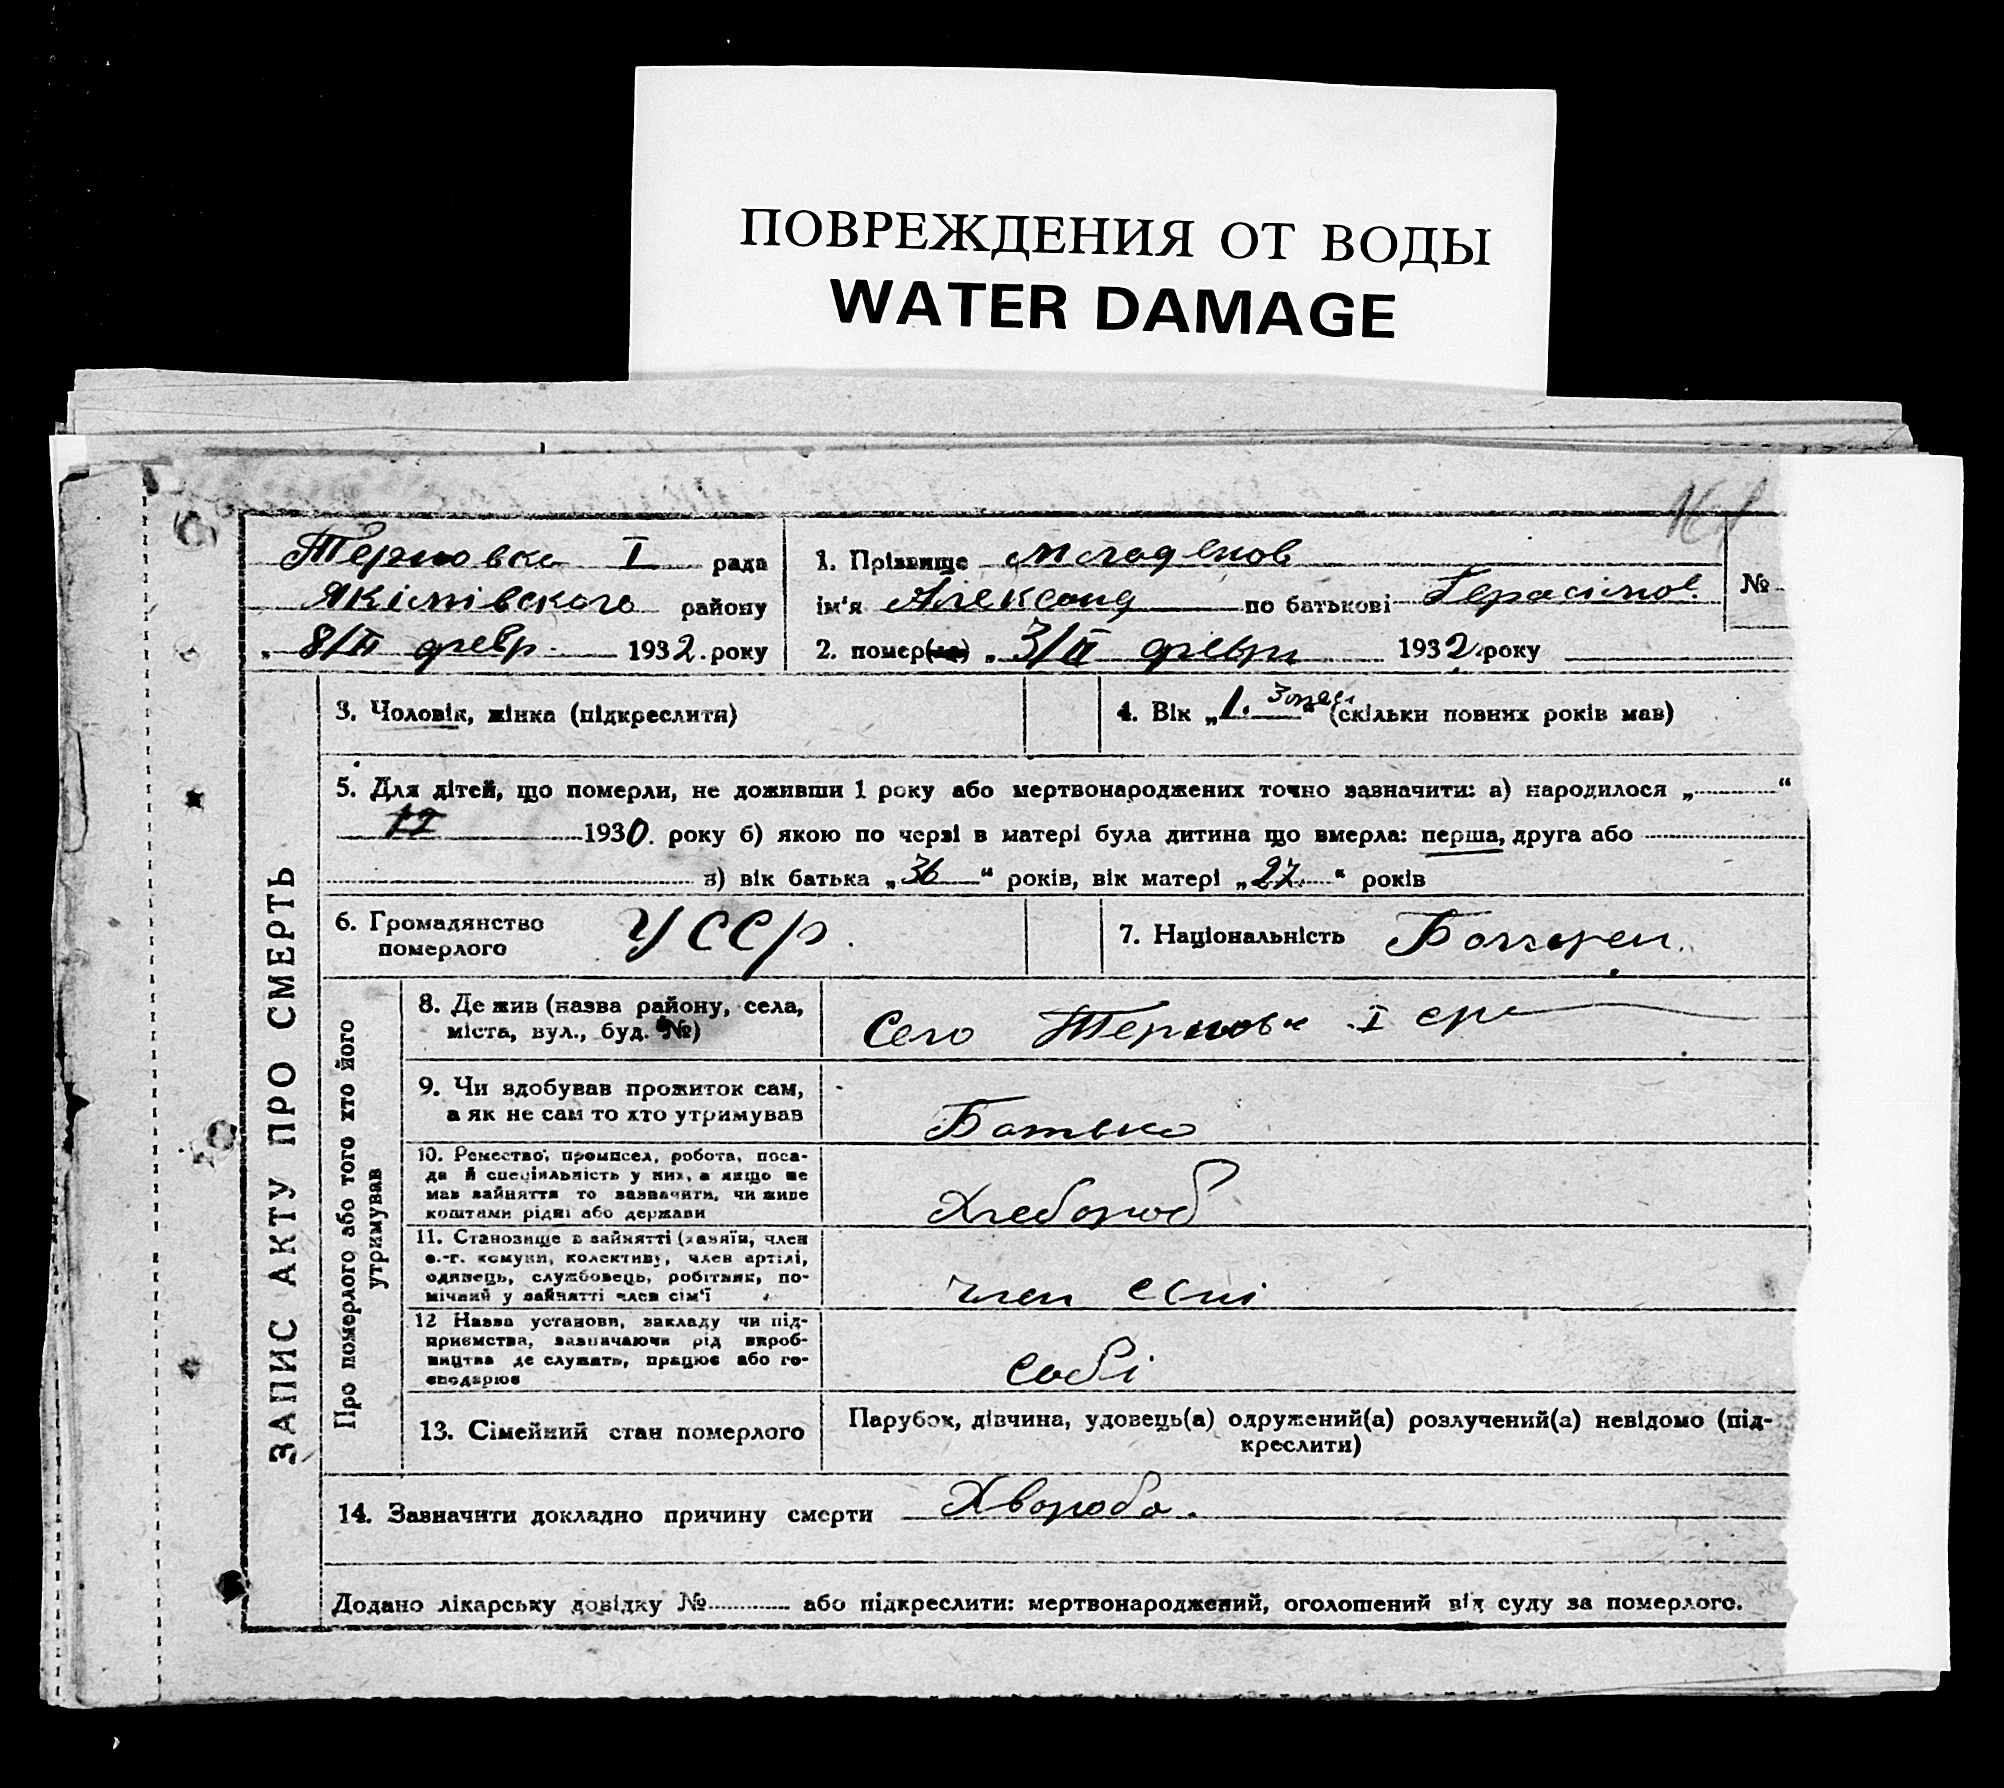 ПОВРЕЖДЕНИЯ ОТ ВОДЫ
WATER DAMAGE
Терновка I рада
Якімівского району
„ 8/II февр. 1932. року
1. Прізвище Младенов
ім'я Александ по батькові Герасімов.
2. помер(ла) „ 3/II февр 1932 року
№
3. Чоловік, жінка (підкреслити)
4. Вік „1. “ (скільки повних років мав)
5. Для дітей, що померли, не доживши 1 року або мертвонароджених точно зазначити: а) народилося „ “
1930. року б) якою по черзі в матері була дитина що вмерла: перша, друга або
в) вік батька „36“ років, вік матері „27.“ років
6. Громадянство
померлого
УССР.
7. Національність Болгарен.
ЗАПИС АКТУ ПРО СМЕРТЬ
Про померлого або того хто його
утримував
8. Де жив (назва району, села,
міста, вул., буд. №)
Село Терновк I
9. Чи здобував прожиток сам,
а як не сам то хто утримував
Батько
10. Ремество, промисел, робота, поса-
да й спеціяльність у них, а якщо не
мав зайняття то зазначити, чи живе
коштами рідні або держави
Хлебороб
11. Становище в зайнятті (хазяїн, член
с.-г. комуни, колективу, член артілі,
одинець, службовець, робітник, по-
мічний у зайнятті член сім'ї
член
12 Назва установи, закладу чи під-
приємства, зазначаючи рід вироб-
ництва де служить, працює або го-
сподарює
собі
13. Сімейний стан померлого
Парубок, дівчина, удовець(а) одружений(а) розлучений(а) невідомо (під-
креслити)
14. Зазначити докладно причину смерти Хвороба.
Додано лікарську довідку № або підкреслити: мертвонароджений, оголошений від суду за померлого.